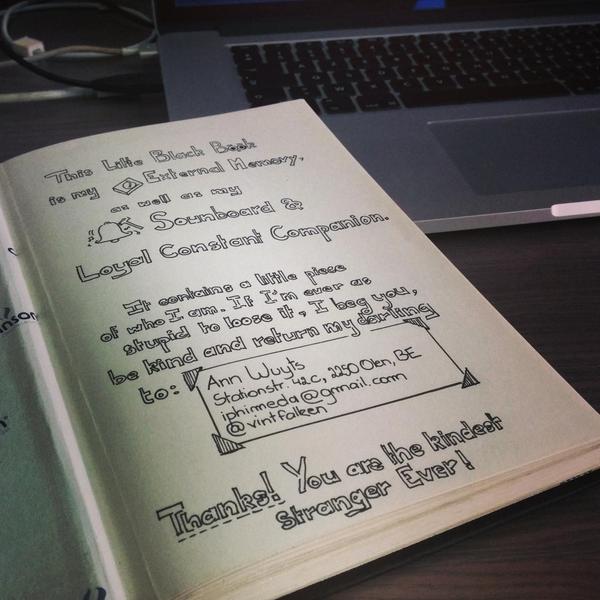 This Little Black Book
is my External Memory,
as well as my
Sounboard &
Loyal Constant Companion.
It contains a little piece
of who I am. If I'm ever as
stupid to loose it, I beg you,
be kind and return my darling
to:
Ann Wuyts
Stationstr. 42c, 2250 Olen, BE
iphimedia@gmail.com
@vintfalken
Thanks! You are the kindest
stranger Ever!